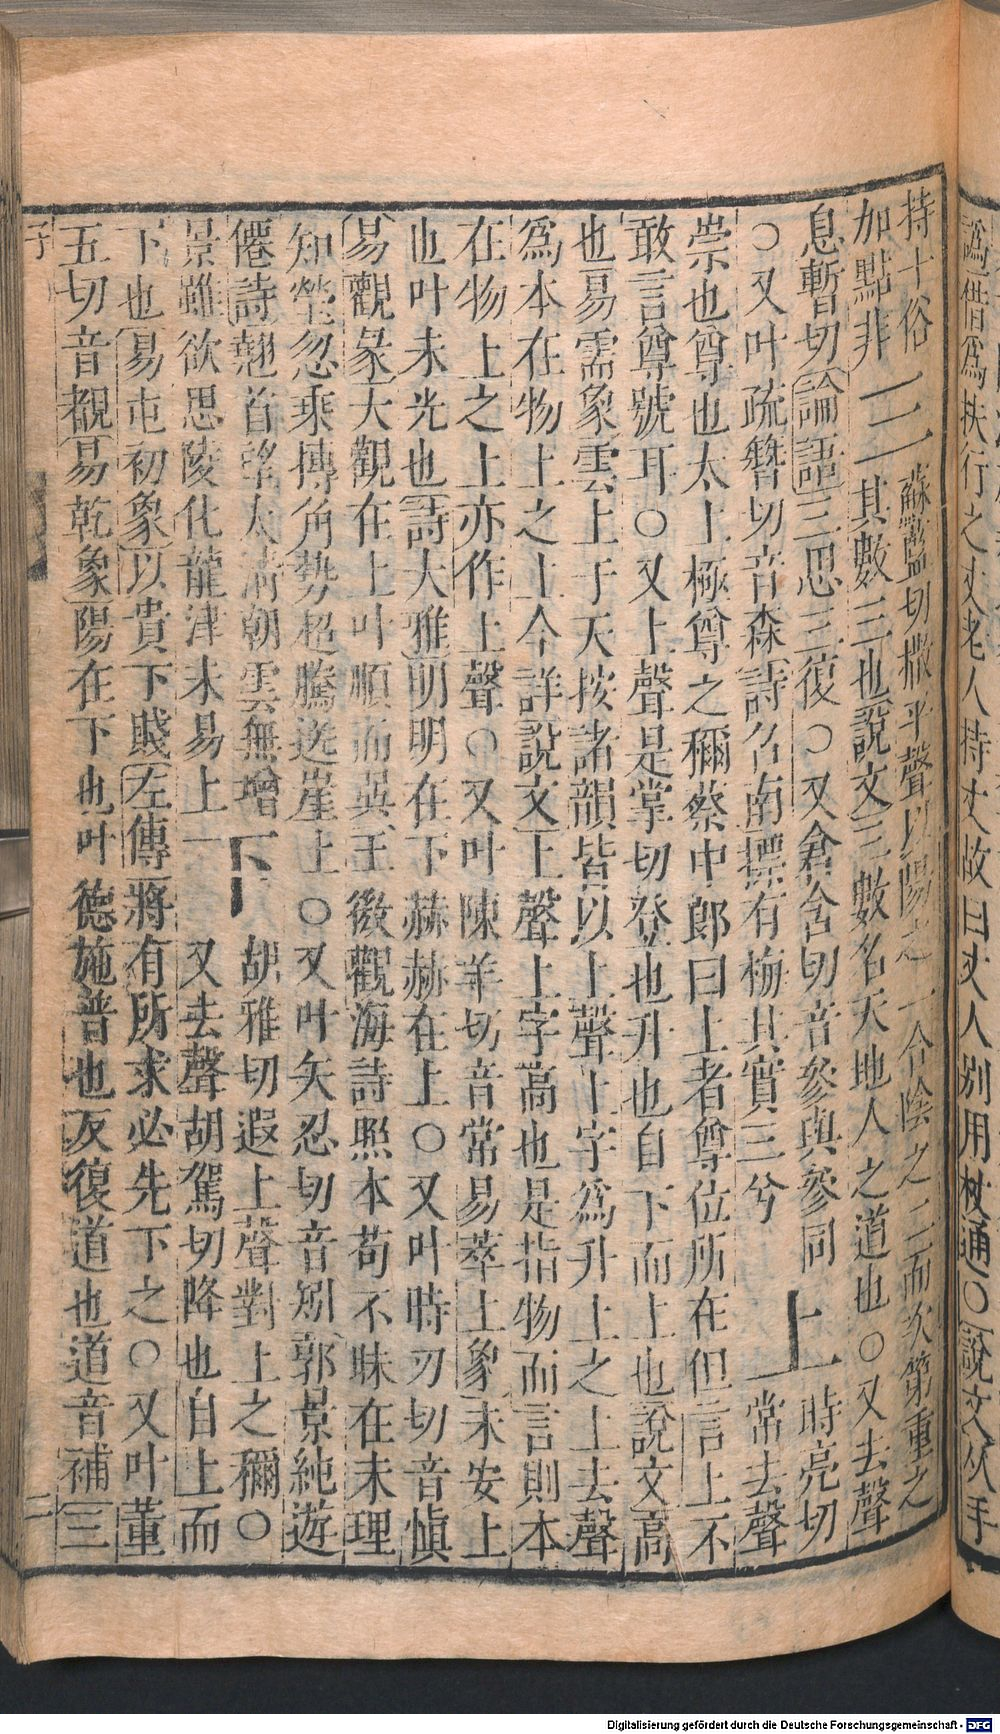 爲借爲扶行之丈老人持丈故曰丈人别用杖通○說文从手
持十俗 三 蘇藍切撒平聲以陽之一合陰之二而次第重之
加點非 其數三也說文三數名天地人之道也○又去聲
息暫切論語三思三復○又倉含切音參與參同 上 時亮切
○又叶疏簪切音森詩召南摽有梅其實三兮 常去聲
崇也尊也太上極尊之稱蔡中郎曰上者尊位所在但言上不
敢言尊號耳○又上聲是掌切登也升也自下而上也說文高
也易需象雲上于天按諸韻皆以上聲上字爲升上之上去聲
爲本在物上之上今詳說文上聲上字高也是指物而言則本
在物上之上亦作上聲○又叶陳羊切音常易萃上象未安上
也叶未光也詩大雅明明在下赫赫在上○又叶時刃切音愼
易觀彖大觀在上叶順而巽王徽觀海詩照本苟不昧在末理
知瑩忽乘摶角勢超騰送崖上○又叶矢忍切音矧郭景純遊
僊詩翹首望太清朝雲無增 下 胡雅切遐上聲對上之稱○
景雖欲思陵化龍津未易上 又去聲胡駕切降也自上而
下也易屯初象以貴下賤左傳將有所求必先下之○又叶董
五切音覩易乾象陽在下也叶德施普也反復道也道音補三
子 二
Digitalisierung gefördert durch die Deutsche Forschungsgemeinschaft - DFG